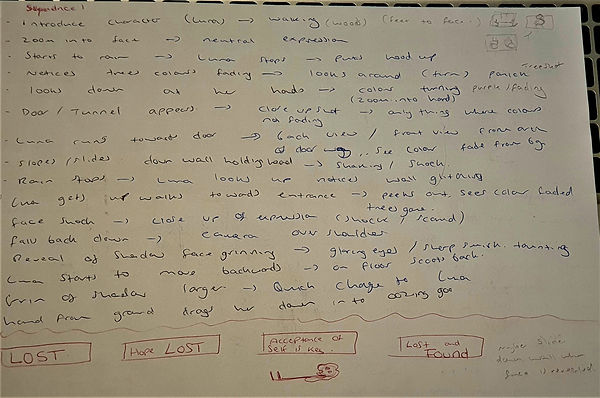 Sequence 1
- Introduce character (Luna) → waking (woods) (feet to face..)
- Zoom into face → neutral expression
- Starts to rain → Luna stops → puts hood up
- Notices trees colours fading → looks around (turn) panick
Treeshot
- looks down at her hands → colour turning purple/fading
(zoom into hand)
- Door / Tunnel appears → close up shot → only thing where colours
not fading
- Luna runs towards door → back view / front view from
of door ... See color fade from bg
- Slopes / slides down wall holding head → shaking / shock.
- Rain stops → Luna looks up notices wall glitching
Luna gets up walks towards entrance → peeks out, sees color faded
trees gone.
face shock → close up of expression (shock / scared)
fall back down → camera over shoulder
Reveal of shadow face grinning → glaring eyes / sharp smirk. taunting
Luna starts to move backwards → on floor scoots back.
Grin of shadow larger → Quick Charge to Luna
hand from ground drags her down in to oozing goo
LOST
Hope LOST
Acceptance of
Self is key.
Lost and
Found
maybe Slide
down wall when